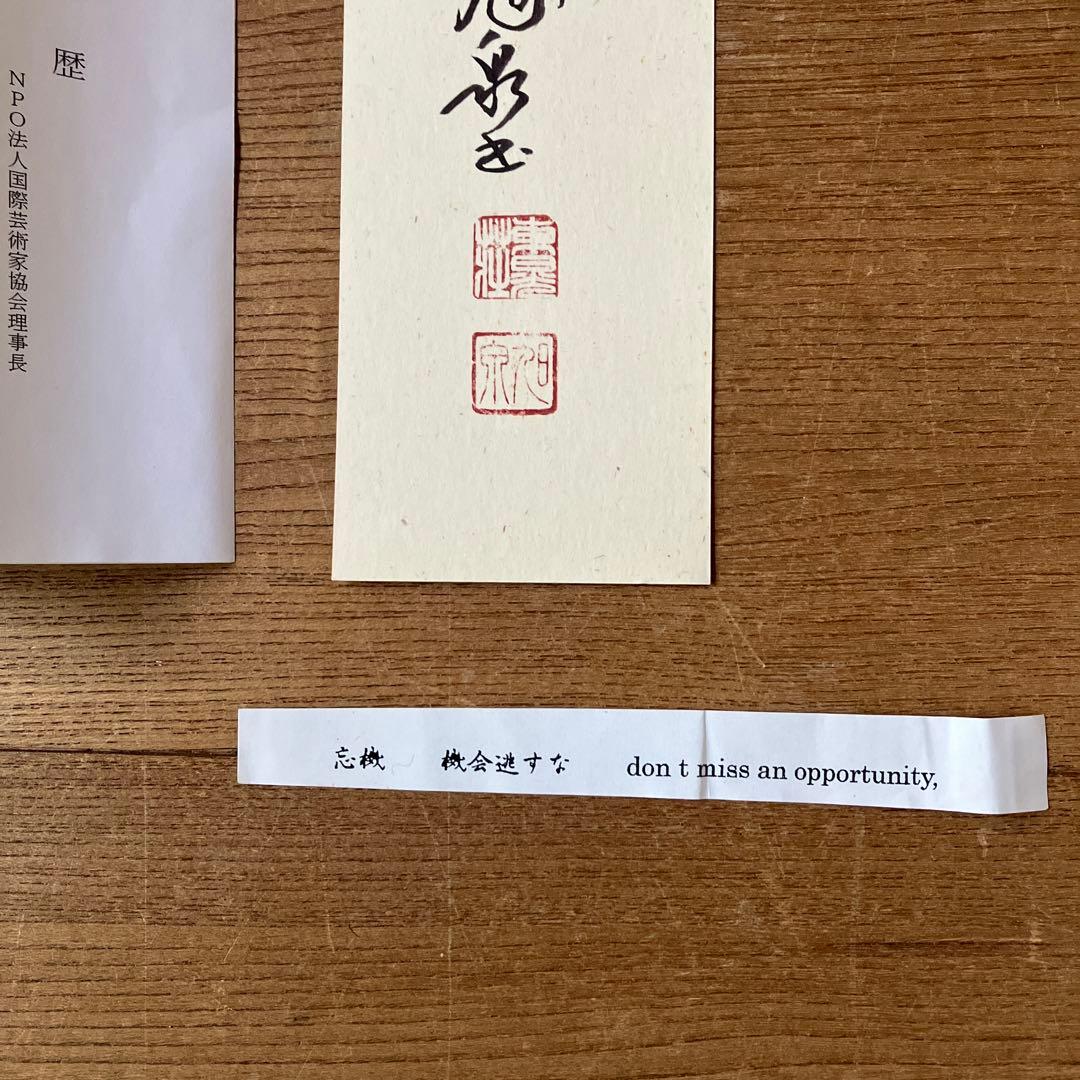 歴
NPO法人国際芸術家協会理事長
泉書
忘機 機会逃すな don t miss an opportunity,